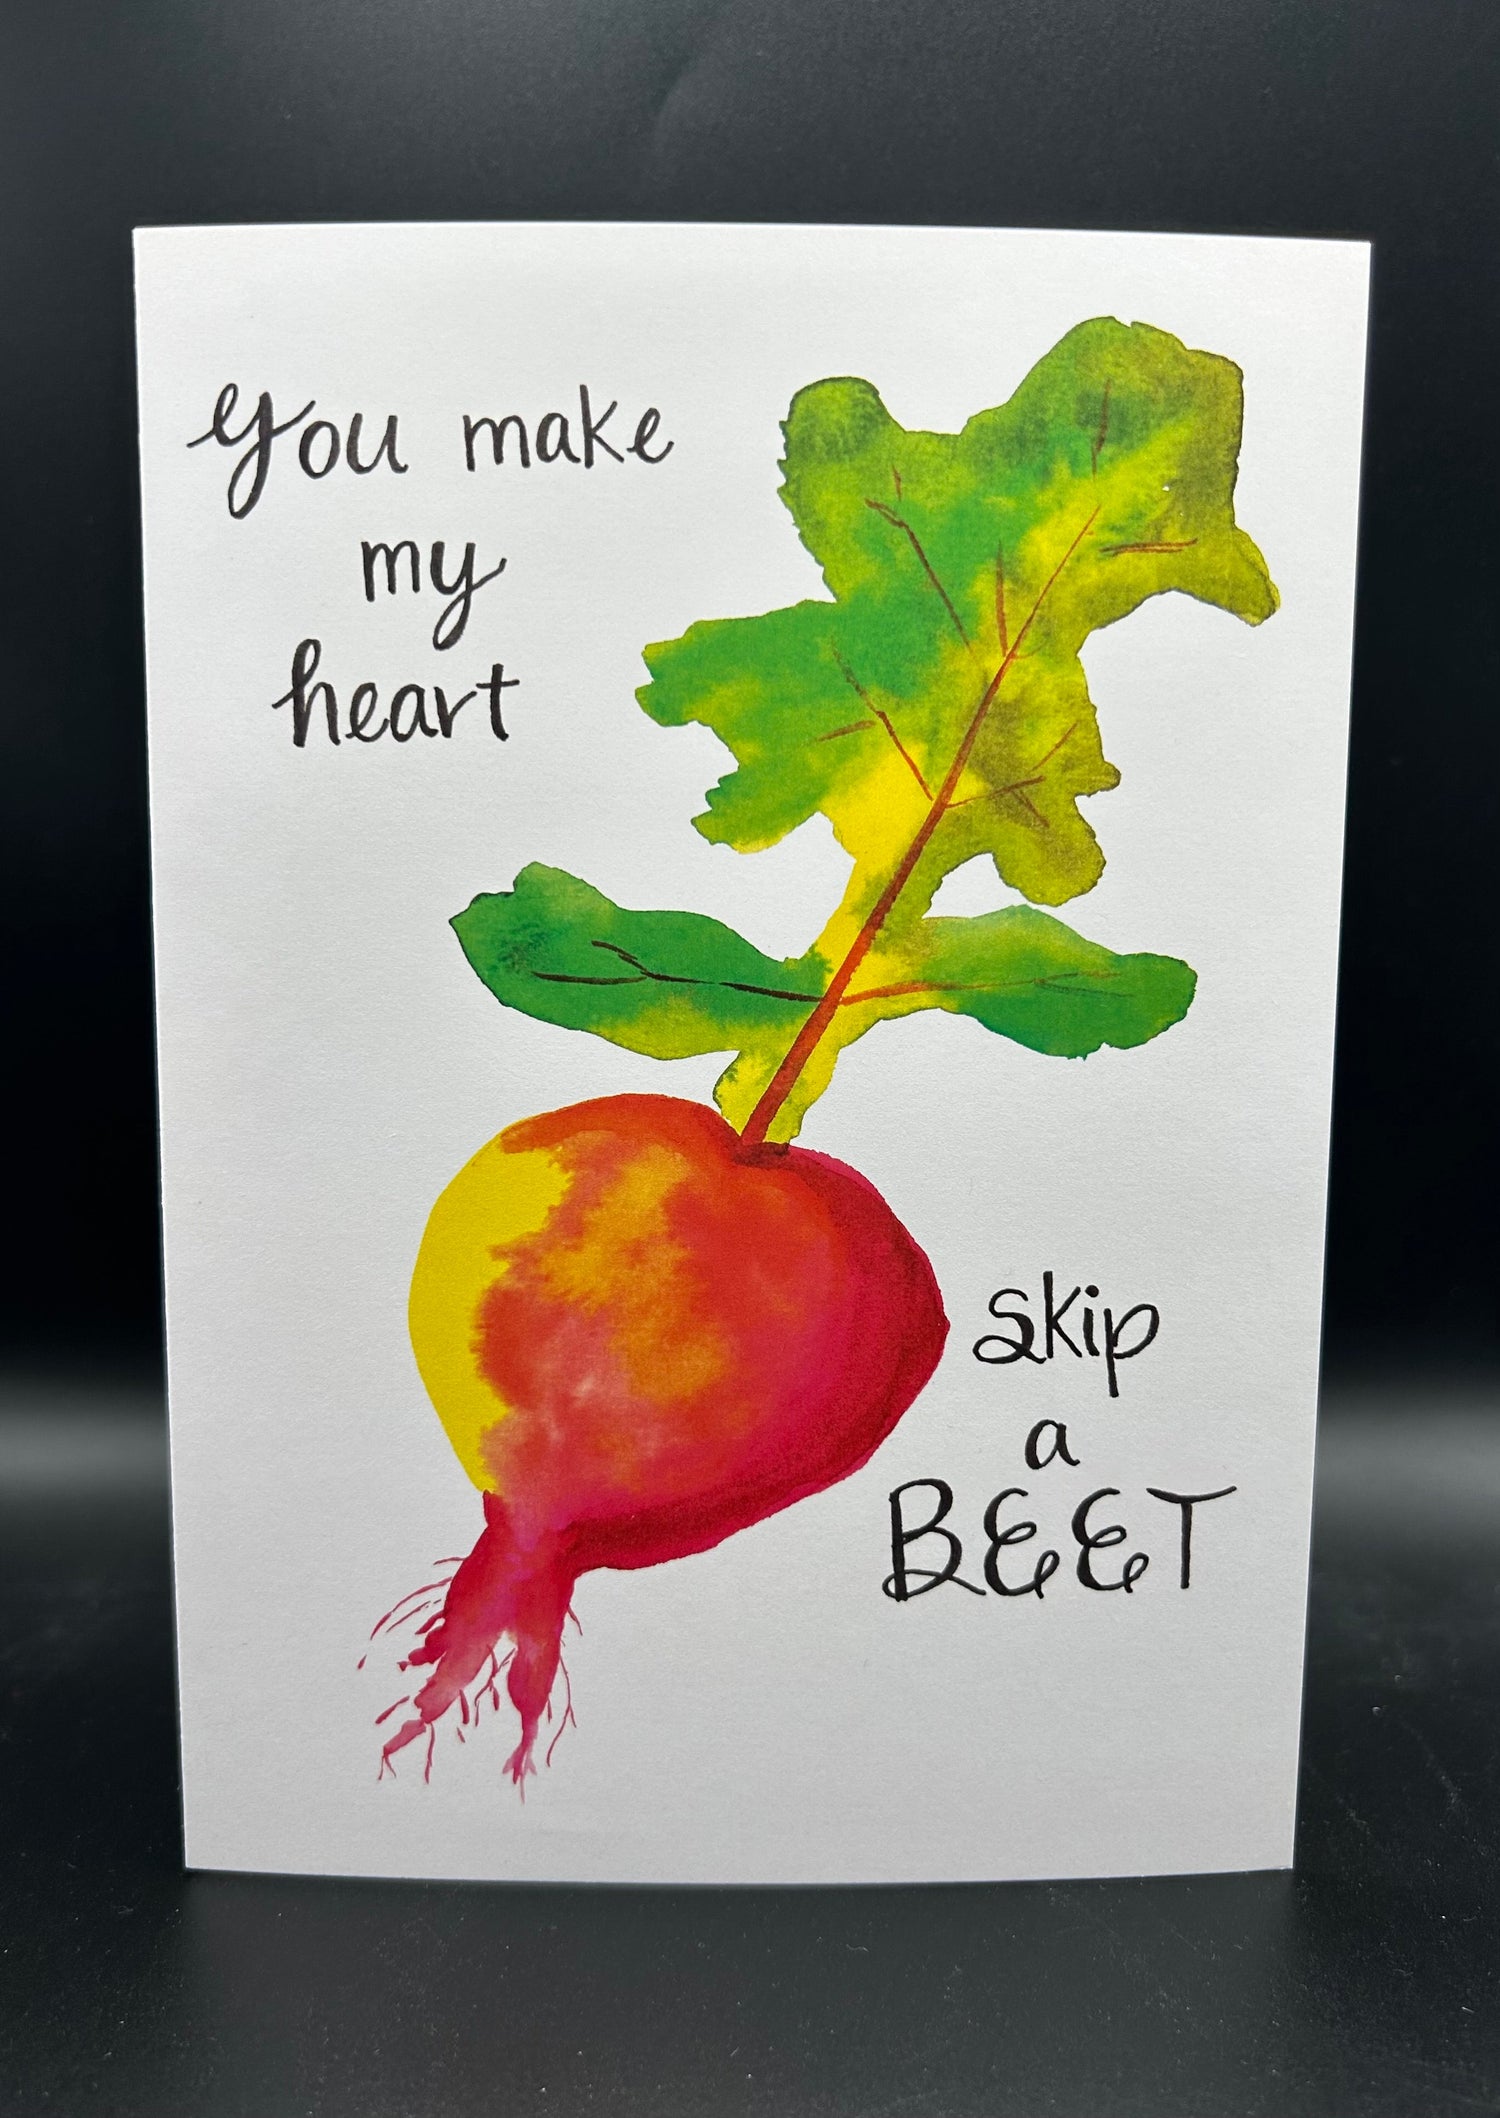 You make
my
heart
skip
a
BEET